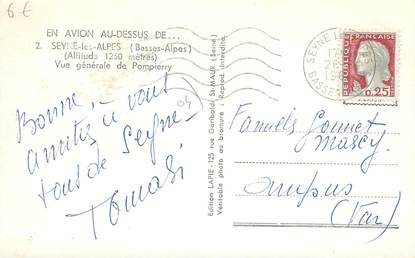 6 €
EN AVION AU-DESSUS DE...
2. SEYNE-les-ALPES (Basses-Alpes)
(Altitude 1250 mètres)
Vue générale de Pompierry
Bonne
amitié à vous
tous de Seyne
Tomasi
04
Edition LAPIE - 125 rue Garibaldi St-MAUR (Seine)
Véritable photo au bromure - Reprod. interdite.
SEYNE
17
26
19
BASSES
REPUBLIQUE FRANÇAISE
0,25
Famille Gounet
Ampus
(Var)